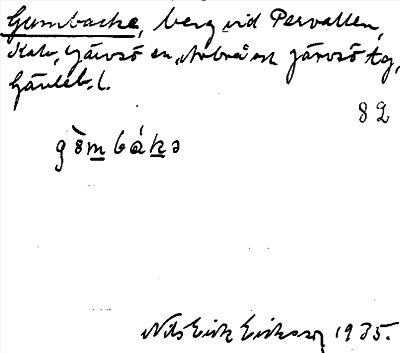 Gumbacke, berg vid Pervallen,
Kalv, Järvsö sn, Arbrå och Järvsö tg,
Gävleb. l.
82
gò̈mbáka
Nils Erik Eriksson 1935.